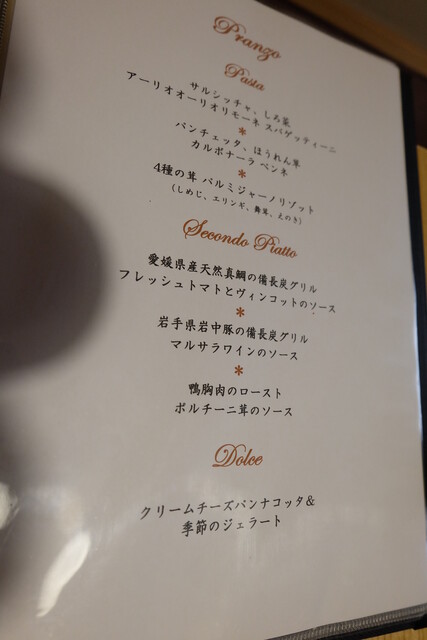 Pranzo
Pasta
サルシッチャ、しろ菜
アーリオオーリオリモーネ スパゲッティーニ
*
パンチェッタ、ほうれん草
カルボナーラ ペンネ
*
4種の茸 パルミジャーノリゾット
(しめじ、エリンギ、舞茸、えのき)
Secondo Piatto
愛媛県産天然真鯛の備長炭グリル
フレッシュトマトとヴィンコットのソース
*
岩手県岩中豚の備長炭グリル
マルサラワインのソース
*
鴨胸肉のロースト
ポルチーニ茸のソース
Dolce
クリームチーズパンナコッタ＆
季節のジェラート